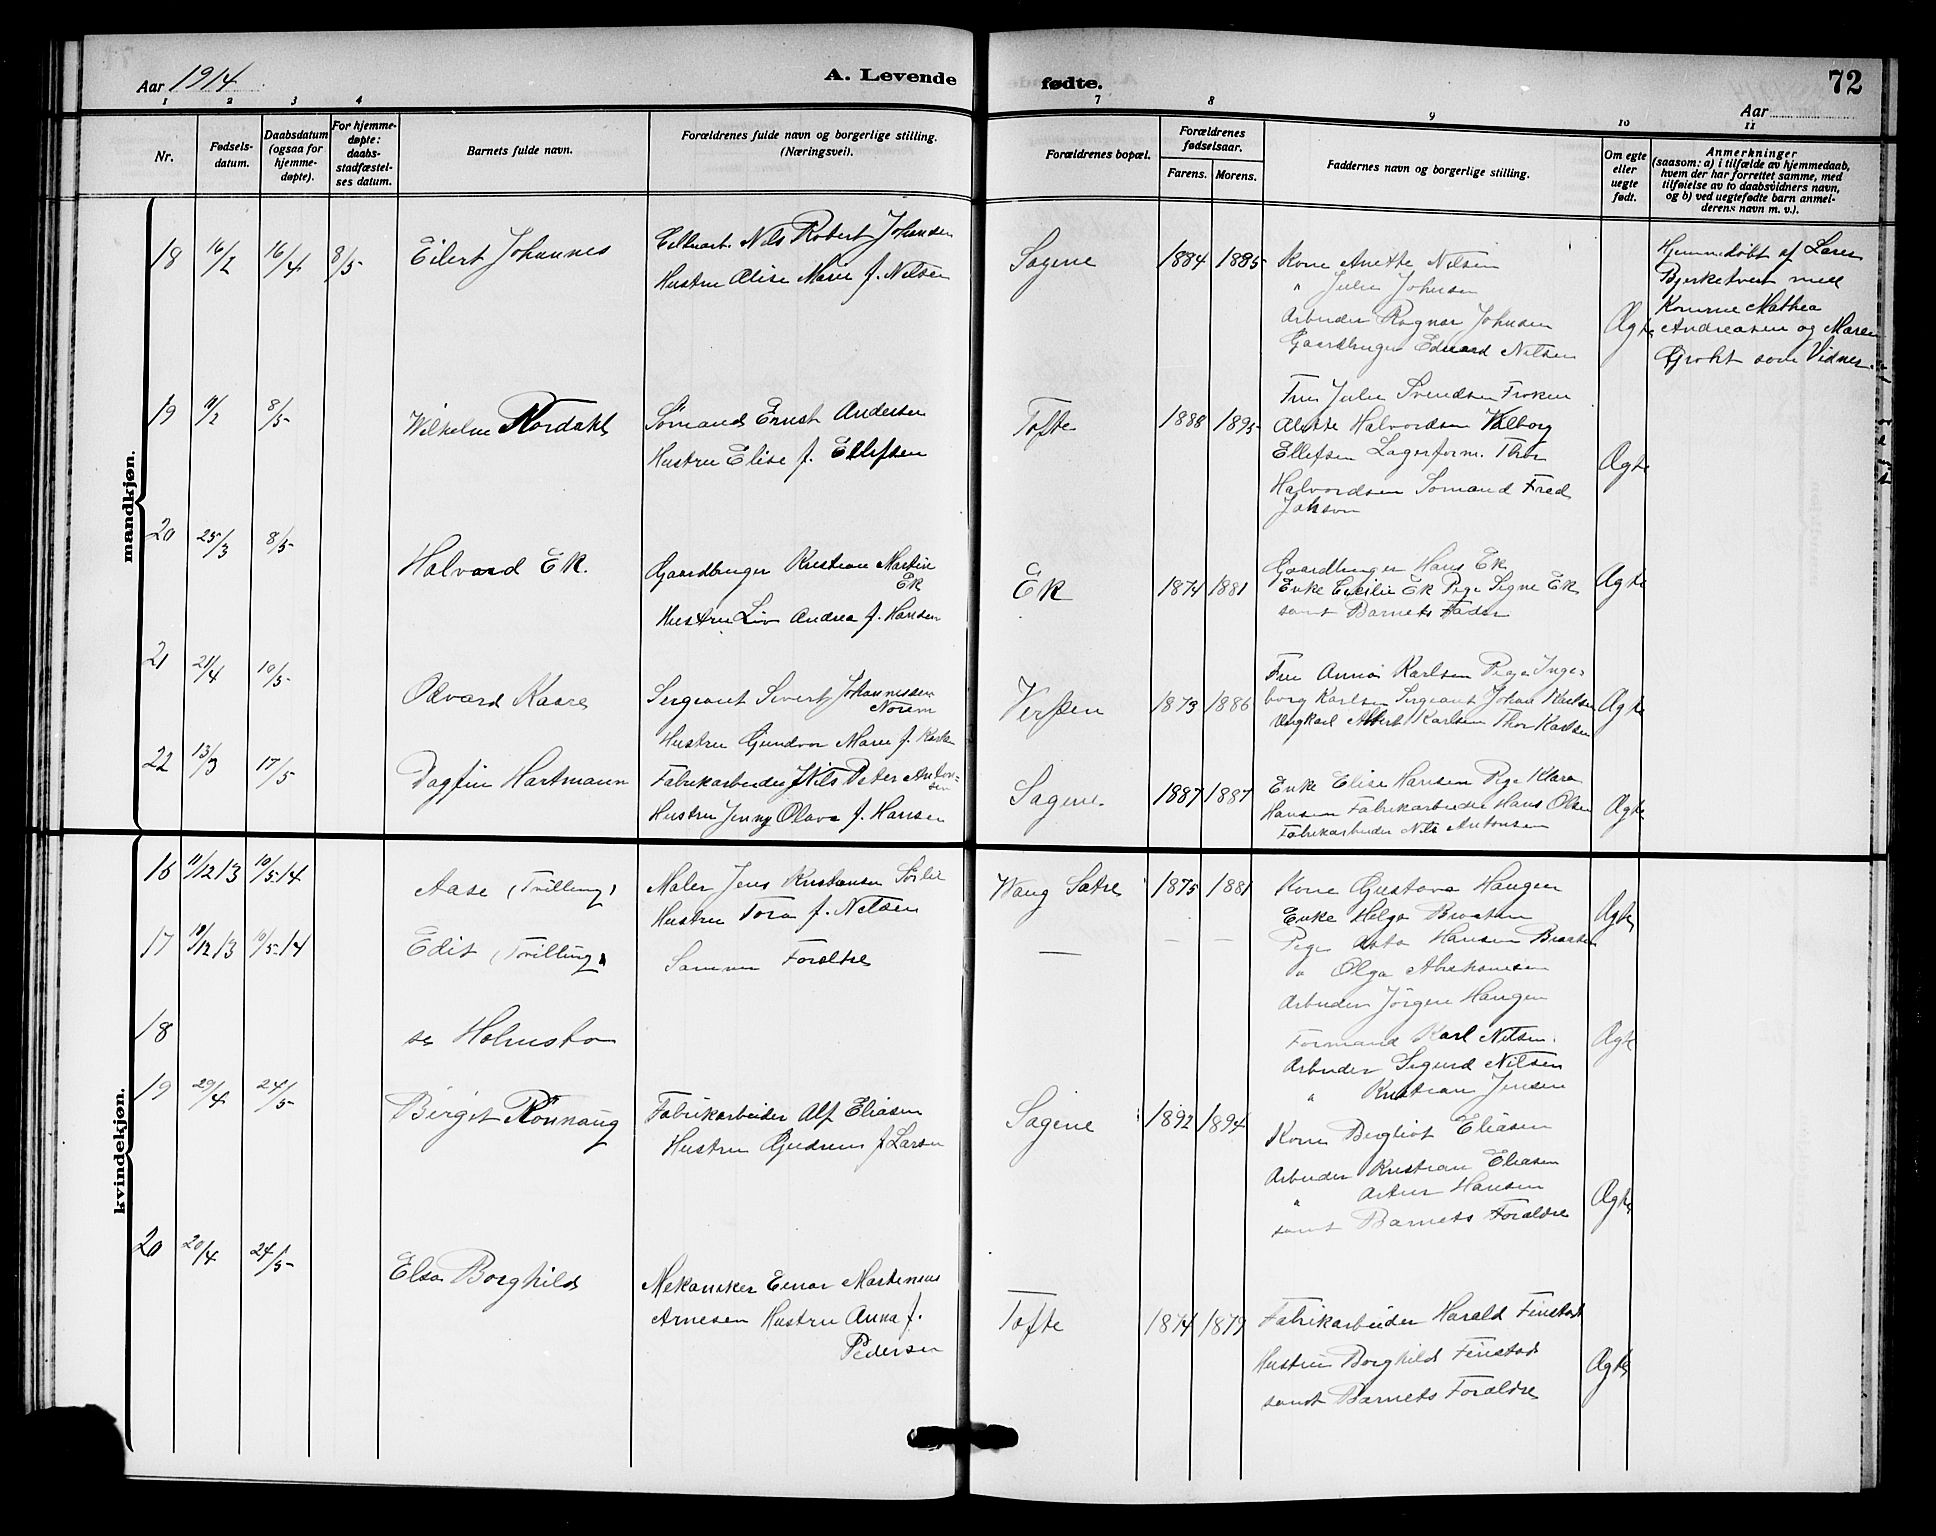 Aar 1914
A. Levende
fødte.
72
Aar
1 2 3 4
7 8 9 10 11
Nr.
Fødsels-
datum.
Daabsdatum
(ogsaa for
hjemme-
døpte).
For hjemme-
døpte:
daabs-
stadfæstel-
ses datum.
Barnets fulde navn.
Forældrenes fulde navn og borgerlige stilling.
(Næringsvei).
Forældrenes bopæl.
Forældrenes
fødselsaar.
Farens. Morens.
Faddernes navn og borgerlige stilling.
Om egte
eller
uegte
født.
Anmerkninger
(saasom: a) i tilfælde av hjemmedaab,
hvem der har forrettet samme, med
tilføielse av to daabsvidners navn,
og b) ved uegtefødte barn anmel-
derens navn m. v.).
mandkjøn.
18 16/2 16/4 8/5 Eilert Johannes
Nils Robert Johansen
Hustru Alise Marie f. Nilsen
Sagene 1884 1885
Kone Anette Nilsen
" Julie Johnsen
Arbeider Ragnar Johnsen
Gaardbruger Edvard Nilsen
Ægte
Hjemmedøbt af Lars
Bjerketvedt med
Konerne Mathea
Andreasen og Maren
Groht som Vidner
19 11/2 8/5 Wilhelm Nordahl
Sømand Ernst Andersen
Hustru Elise f. Ellefsen
Tofte 1888 1895
Fru Julie Svendsen Frøken
Alette Halvordsen Valborg
Ellefsen Lagerform. Thor
Halvordsen Sømand Fred
Johson
Ægte
20 25/3 8/5 Halvard Ek.
Gaardbruger Kristian Martin
Ek
Hustru Liv Andrea f. Hansen
Ek 1874 1881
Gaardbruger Hans Ek
Enke Cecilie Ek Pige Signe Ek
samt Barnets Fader
Ægte
21 21/4 10/5 Odvard Kaare
Sergeant Sivert Johannessen
Norem
Hustru Gundvor Marie f. Karlsen
Verpen 1873 1886
Fru Anna Karlsen Pige Inge-
borg Karlsen Sergeant Johan Karlsen
Ungkarl Albert Karlsen Thor Karlsen
Ægte
22 13/3 17/5 Dagfin Hartmann
Fabrikarbeider Nils Peter Anton-
sen
Hustru Jenny Olava f. Hansen
Sagene. 1887 1887
Enke Elise Hansen Pige Klara
Hansen Fabrikarbeider Hans Olsen
Fabrikarbeider Nils Antonsen
Ægte
kvindekjøn.
16 11/12 13 10/5 14 Aase (Tvilling)
Maler Jens Kristensen Solli
Hustru Tora f. Nilsen
Wang Sætre 1875 1881
Kone Gustava Haugen
Enke Helga Braaten
Pige Asta Hansen Braaten
" Olga Abrahamsen
Arbeider Jørgen Haugen
Formand Karl Nilsen.
Arbeider Sigurd Nilsen
" Kristian Jensen
Ægte
17 11/12 13 10/5 14 Edit (Tvilling)
Samme Forældre
— — —
Ægte
18 se Holmsbo
19 29/4 24/5 Birgit Rönnaug
Fabrikarbeider Alf Eliasen
Hustru Gudrun f. Larsen
Sagene 1892 1894
Kone Bergliot Eliasen
Arbeider Kristian Eliasen
" Artur Hansen
samt Barnets Forældre
Ægte
20 20/4 24/5 Elsa Borghild
Mekaniker Einar Martinius
Arnesen Hustru Anna f.
Pedersen
Tofte 1874 1879
Fabrikarbeider Harald Finstad
Hustru Borghild Finstad
samt Barnets Forældre
Ægte